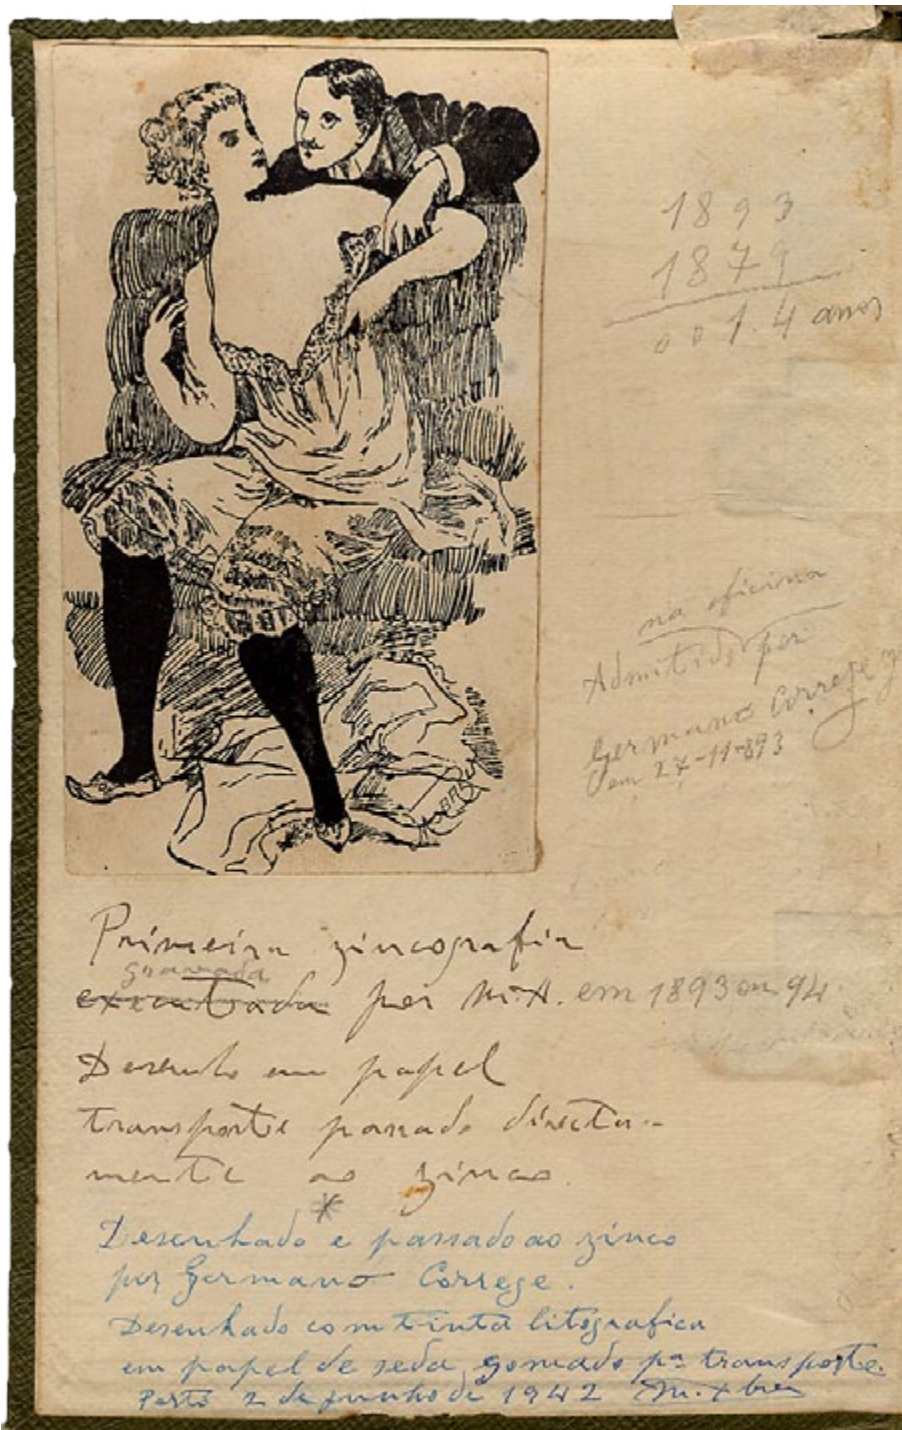 1893
1879
001.4 anos
na oficina
Admitido por
Germano Correge
em 27-11-893
Primeira zincografia
gravada
executada por M.A. em 1893 ou 94.
Desenho em papel
transporte passado directa-
mente ao zinco.
*
Desenhado e passado ao zinco
por Germano Correge.
Desenhado com tinta litografica
em papel de seda, gomado pª transporte.
Porto 2 de junho de 1942